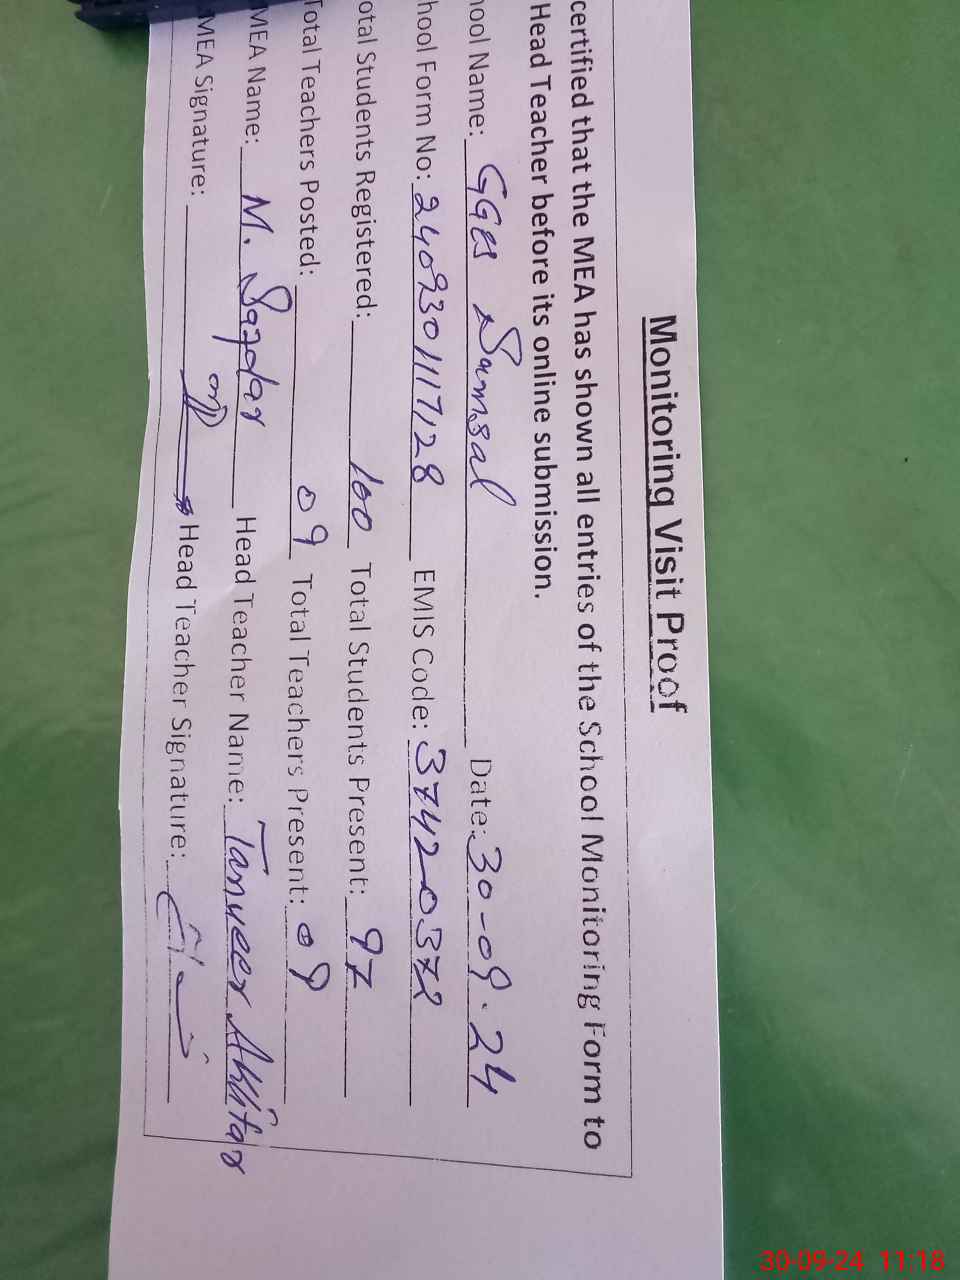 Monitoring Visit Proof
certified that the MEA has shown all entries of the School Monitoring Form to
Head Teacher before its online submission.
ool Name: GGES Samsal Date: 30-09.24
hool Form No: 2409301117128 EMIS Code: 37420372
otal Students Registered: 100 Total Students Present: 97
Total Teachers Posted: 09 Total Teachers Present: 09
MEA Name: M. Safdar Head Teacher Name: Tanveer Akhtar
MEA Signature: Head Teacher Signature:
30-09-24 11:18